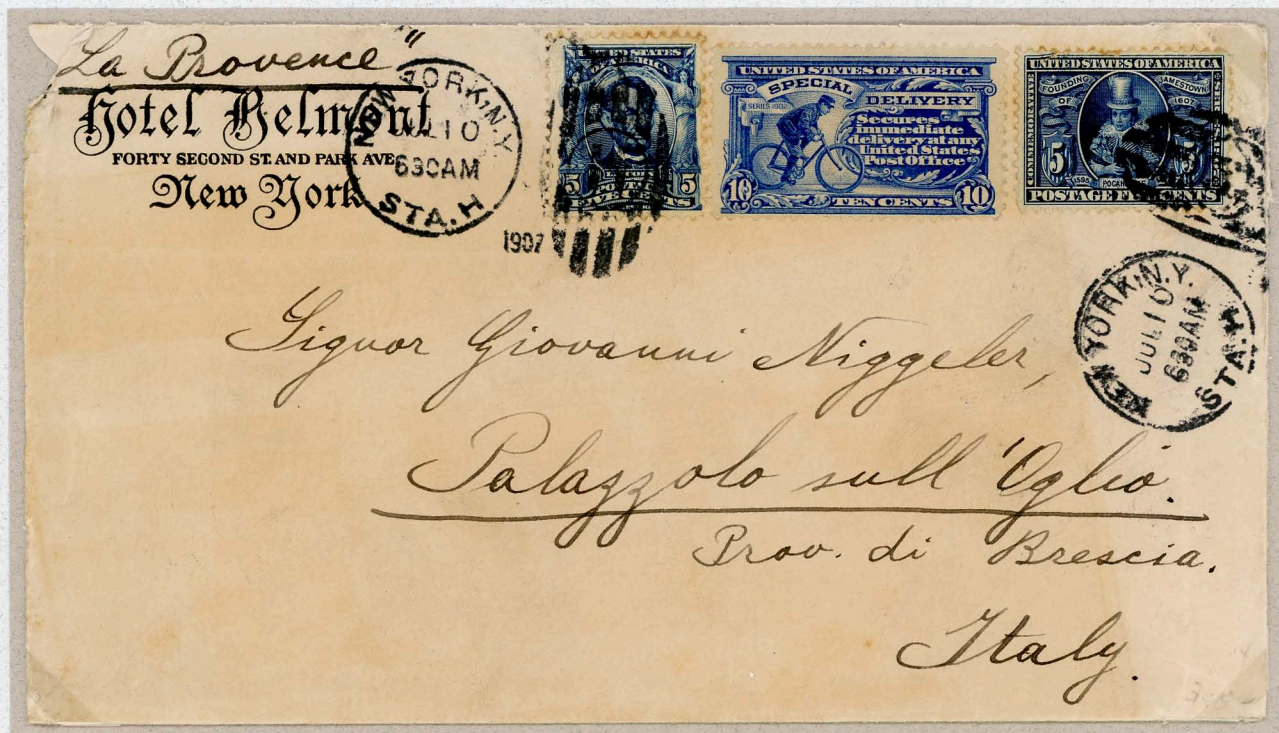 "La Provence"
Hotel Belmont
FORTY SECOND ST. AND PARK AVE.
New York
NEW YORK, N.Y.
JUL 10
630AM
STA. H
1907
UNITED STATES
OF AMERICA
5 5
FIVE CENTS
UNITED STATES OF AMERICA
SPECIAL DELIVERY
SERIES 1902
Secures
immediate
delivery at any
United States
Post Office
10 10
TEN CENTS
UNITED STATES OF AMERICA
FOUNDING OF JAMESTOWN 1607
COMMEMORATIVE SERIES
5 5
1595
POSTAGE FIVE CENTS
NEW YORK, N.Y.
JUL 10
630AM
STA. H
Signor Giovanni Niggeler,
Palazzolo sull 'Oglio.
Prov. di Brescia.
Italy.